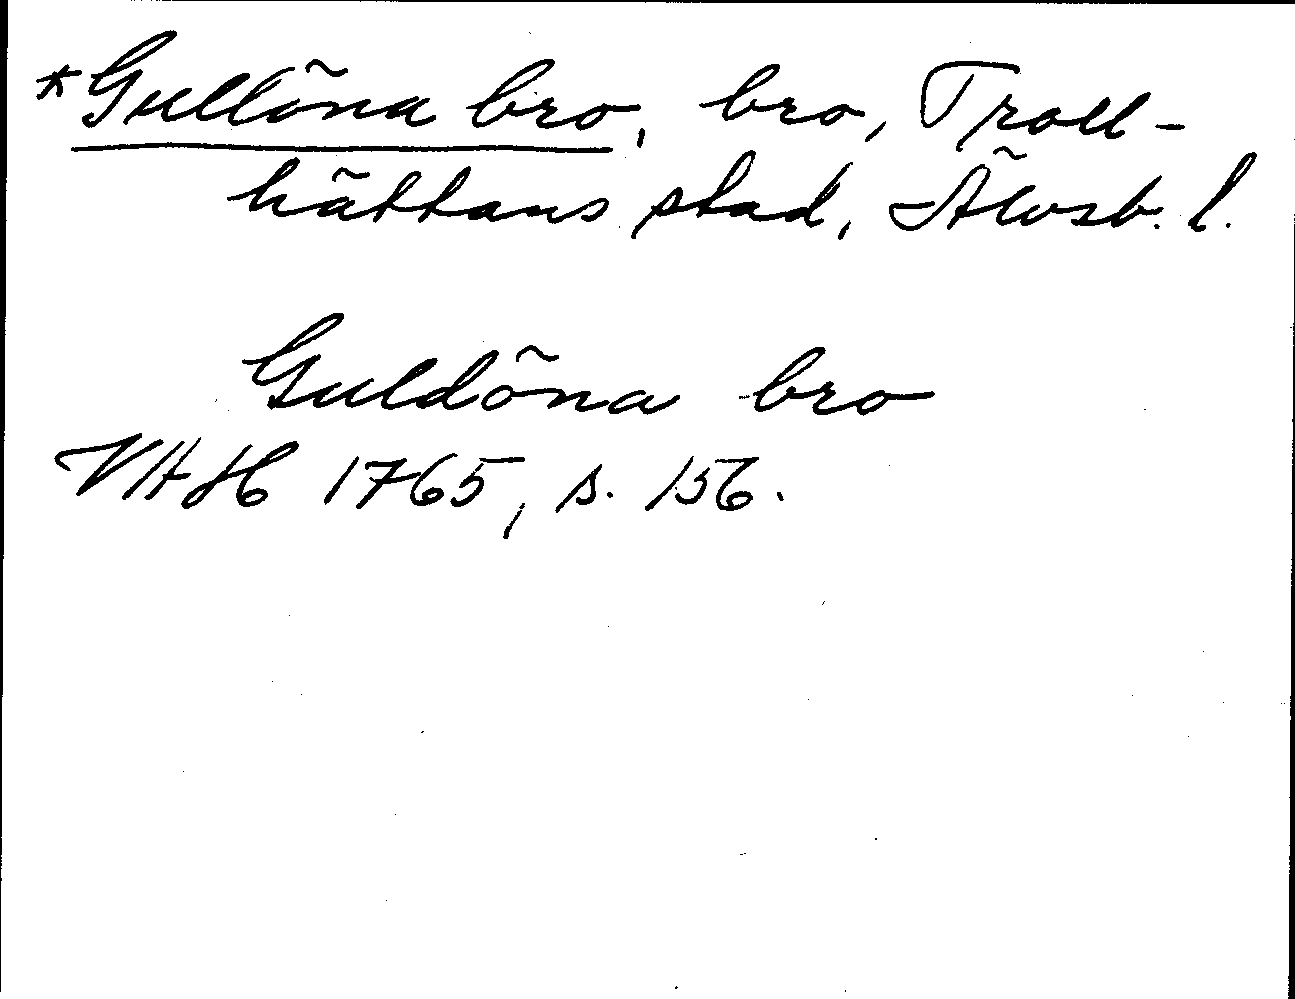 *Gullöna bro, bro, Troll-
hättans stad, Älvsb. l.
Guldöna bro
VHAH 1765, s. 156.